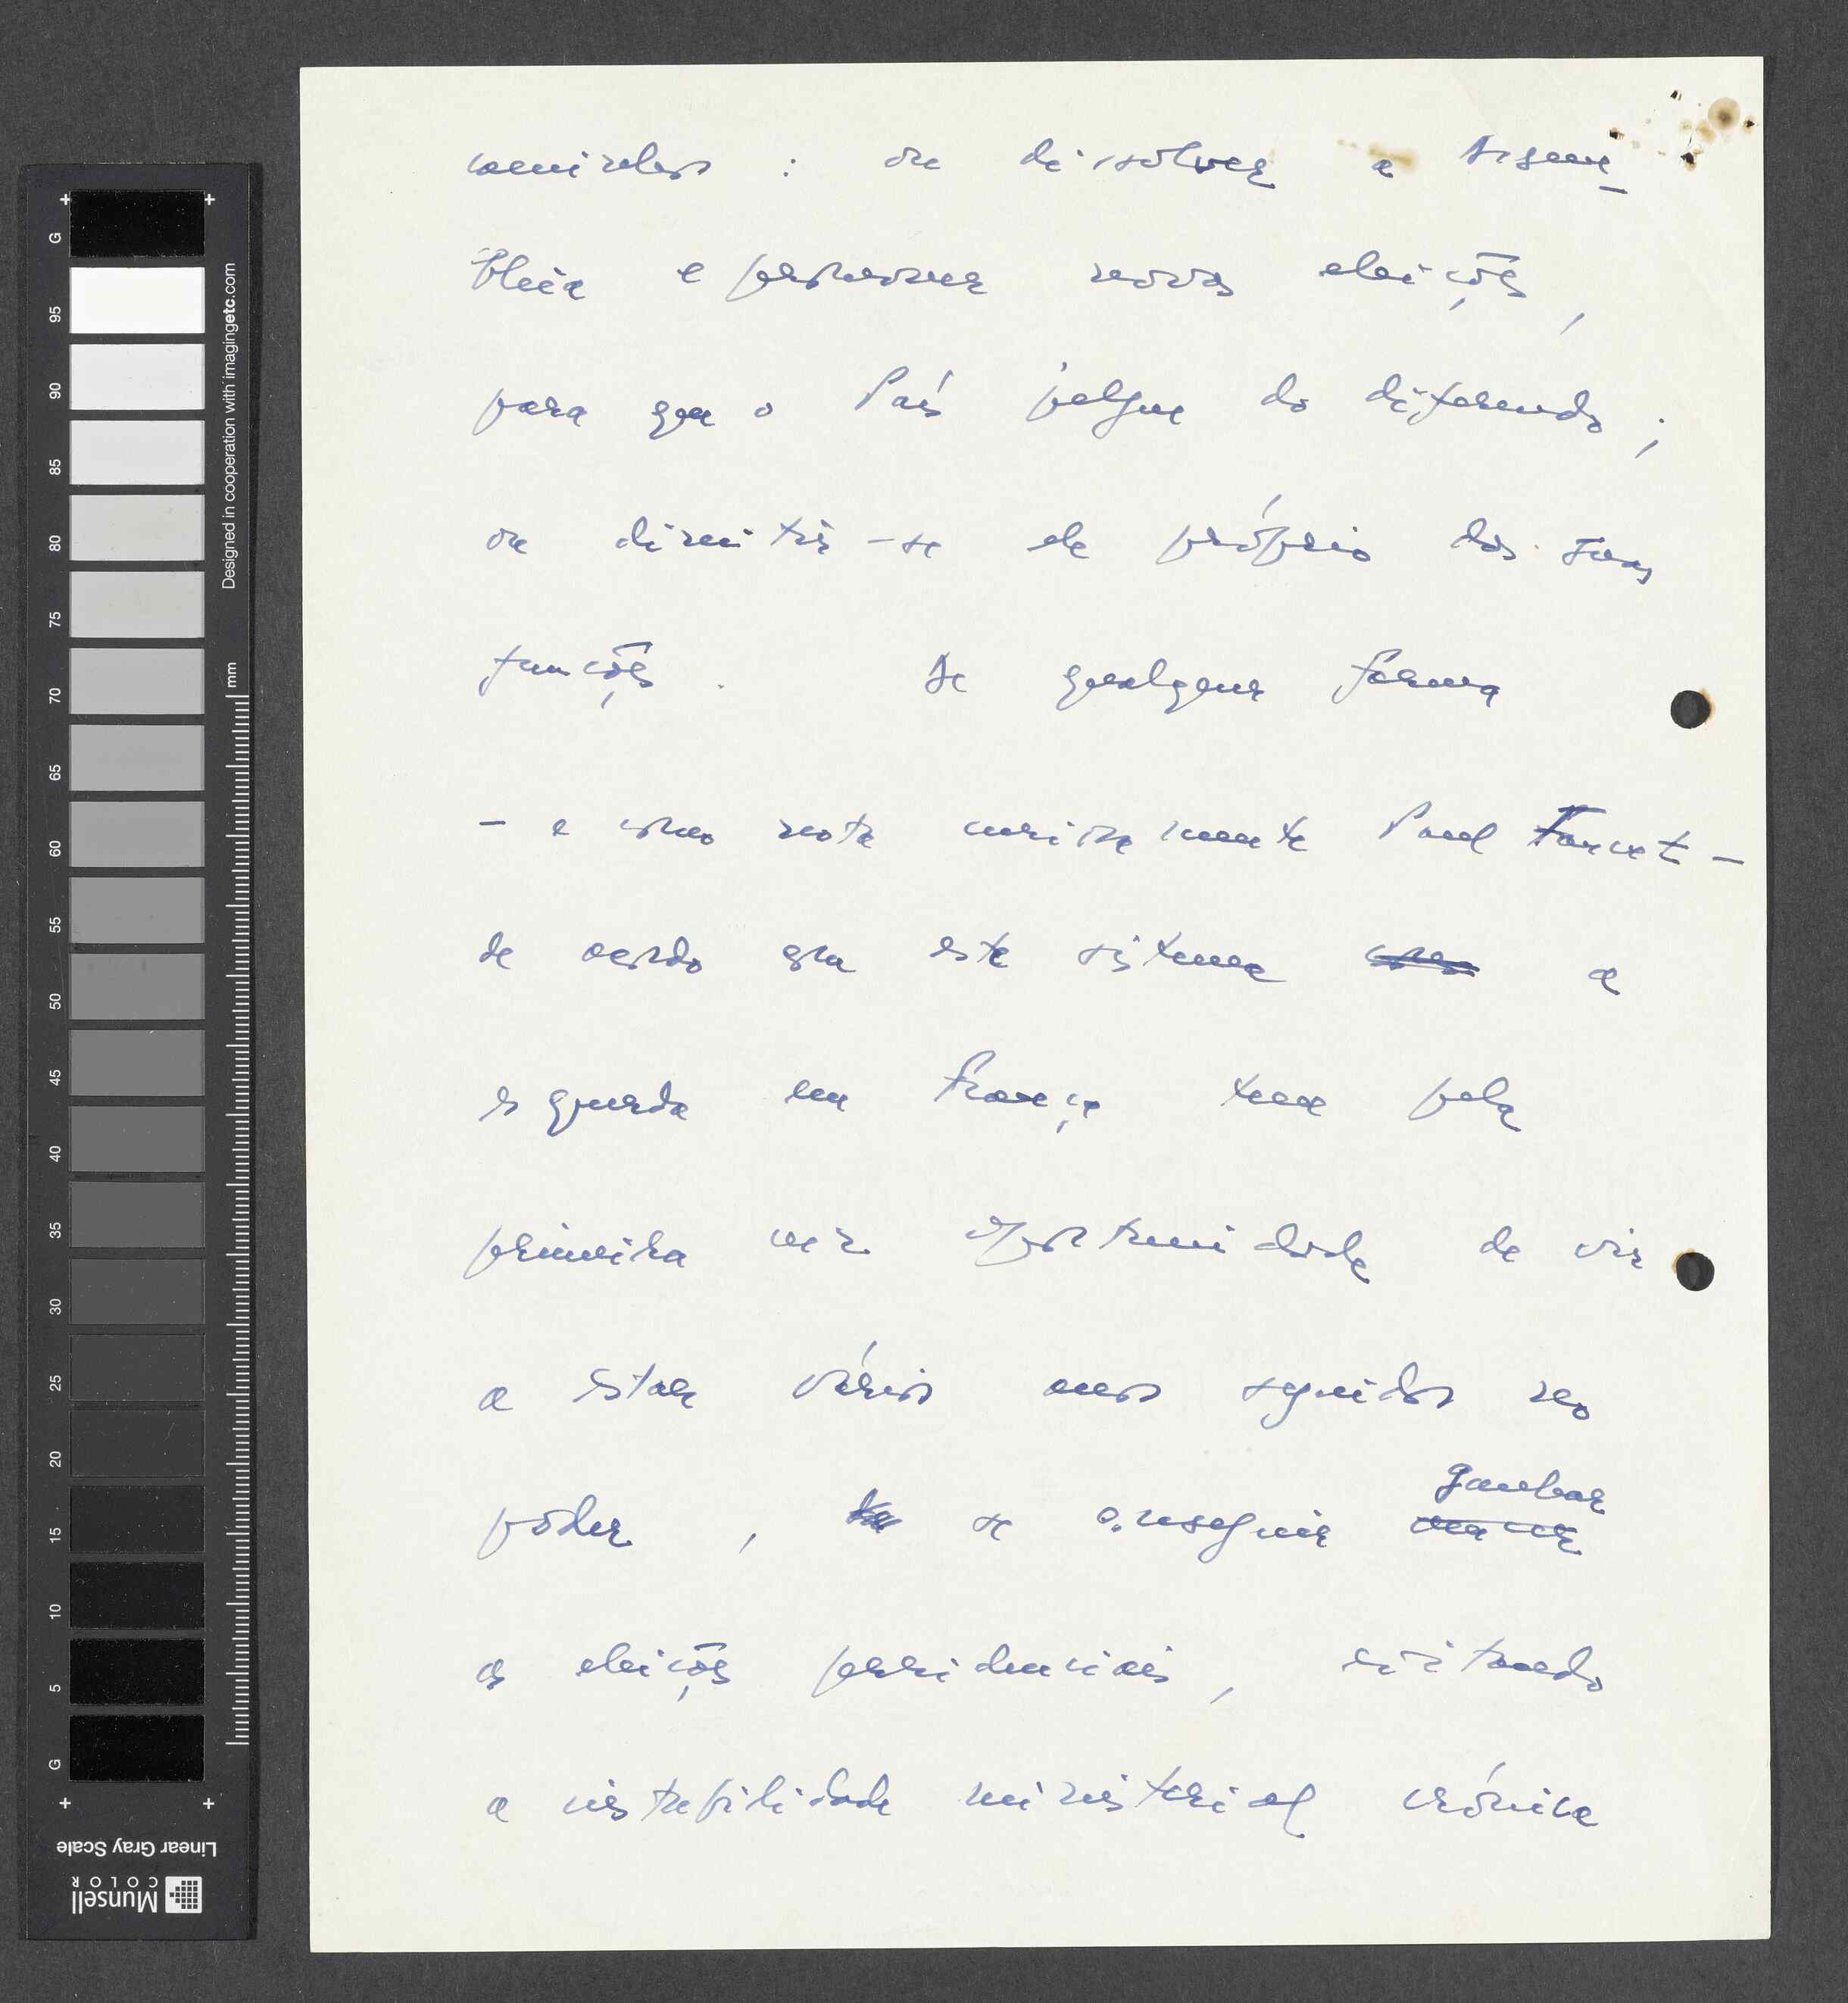 caminhos : ou dissolver a Assem-
bleia e promover novas eleições,
para que o País julgue do diferendo ;
ou demitir-se ele próprio das suas
funções . De qualquer forma
– e como nota curiosamente Paul
de acordo com este sistema a
esquerda em França tem pela
primeira vez oportunidade de vir
a estar vários anos seguidos no
poder , se conseguir ganhar
as eleições presidenciais, evitando
a instabilidade ministerial crónica
G
95
90
85
80
75
70
65
60
55
50
45
40
35
30
25
20
15
10
5
G
mm
Designed in cooperation with imagingetc.com
Linear Gray Scale
Munsell
COLOR